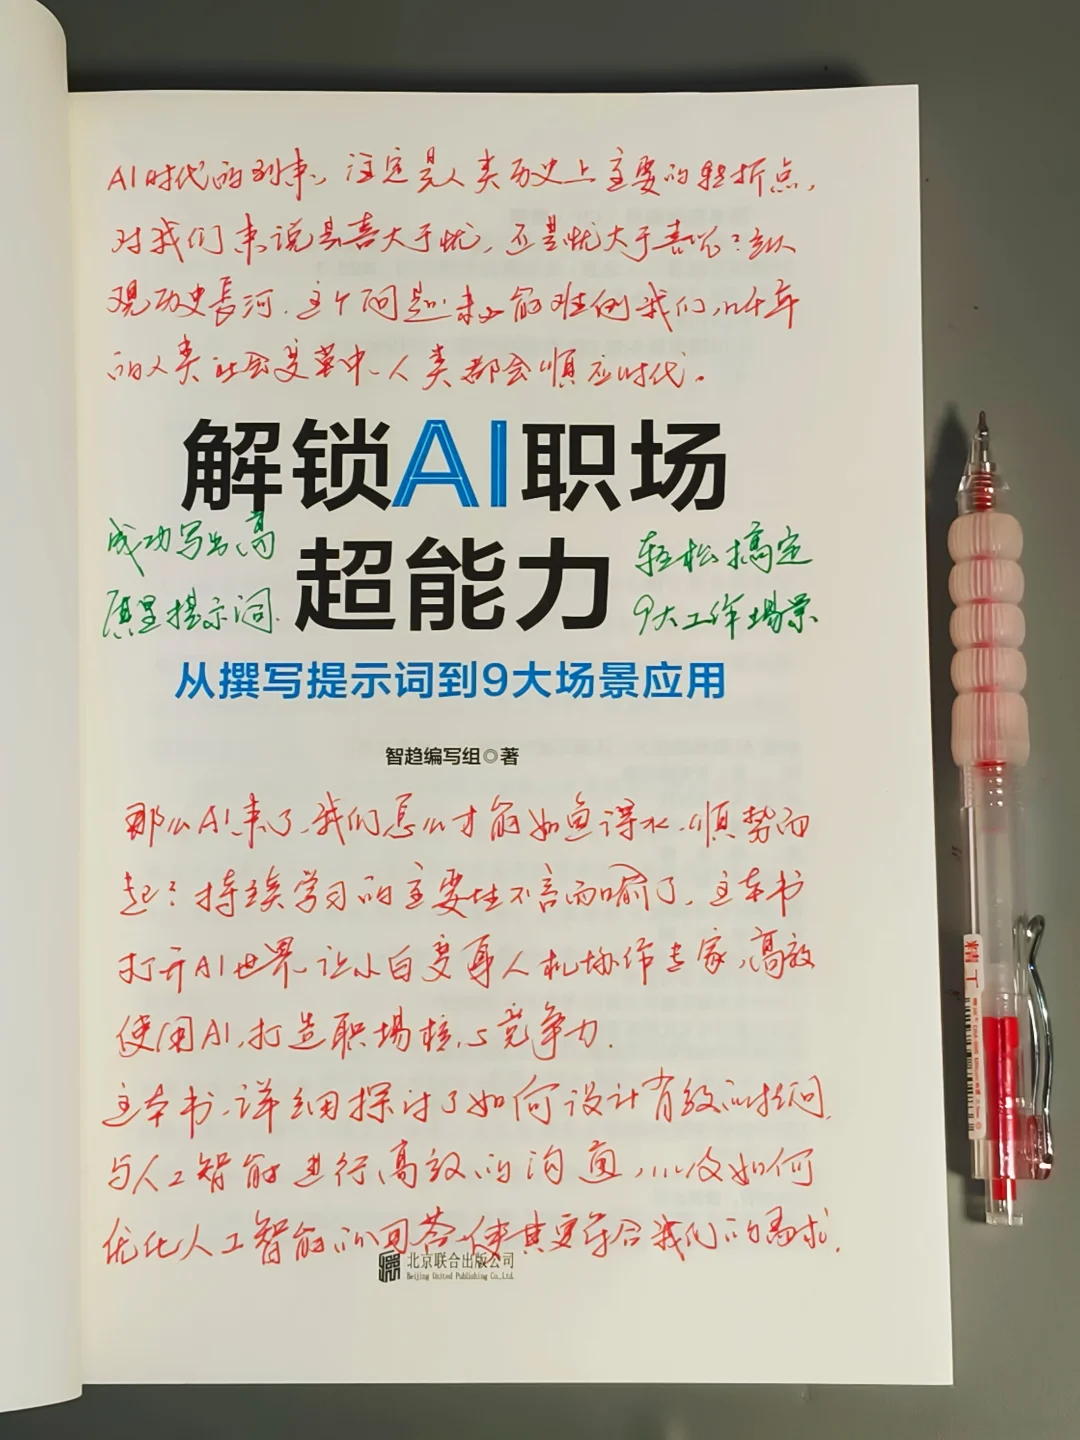 AI时代的到来，注定是人类历史上主要的转折点，
对我们来说是喜大于忧，还是忧大于喜呢？纵
观历史长河，这个问题未必能难倒我们，几千年
的人类社会变革中，人类都会顺应时代。
解锁AI职场
成功写出高
超能力
轻松搞定
质量提示词
9大工作场景
从撰写提示词到9大场景应用
智趋编写组◎著
那么AI来了，我们怎么才能如鱼得水，顺势而
起？持续学习的主要性不言而喻了，这本书
打开AI世界，让小白变身人机协作专家，高效
使用AI，打造职场核心竞争力。
这本书，详细探讨了如何设计有效的提问，
与人工智能进行高效的沟通，以及如何
优化人工智能的回答，使其更符合我们的需求。
北京联合出版公司
Beijing United Publishing Co.,Ltd.
精工